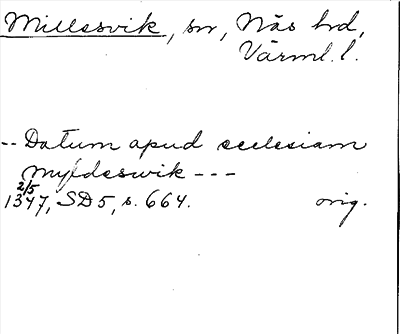 Millesvik, sn, Näs hd,
Värml. l.
-- Datum apud ecclesiam
Myldeswik ---
2/5
1347, SD 5, s. 664. orig.